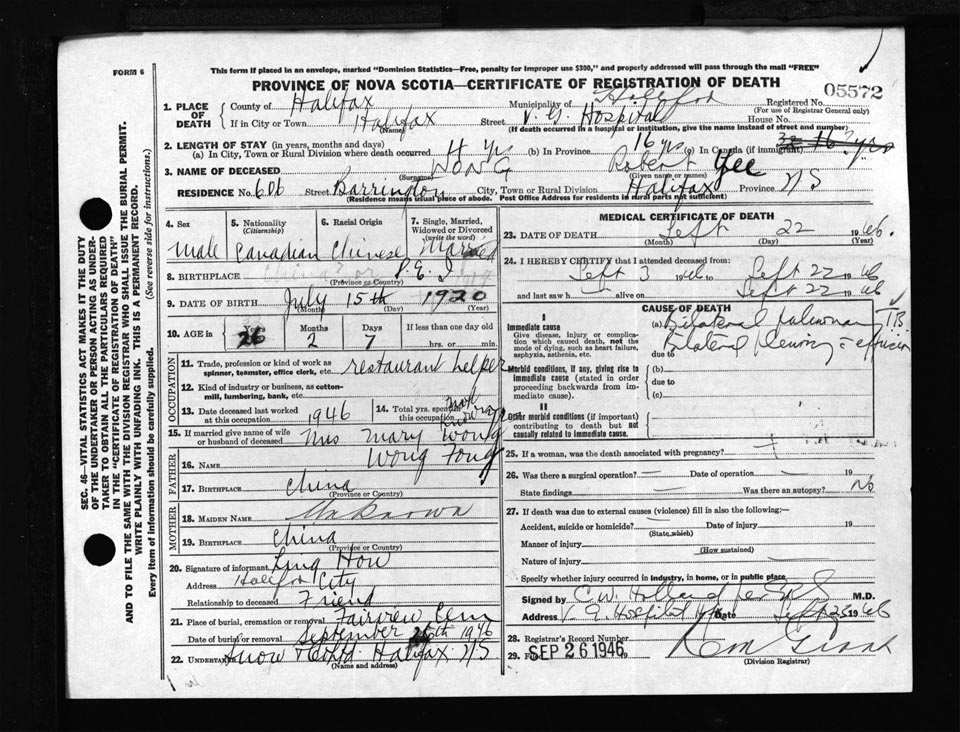 FORM 6
This form if placed in an envelope, marked "Dominion Statistics—Free, penalty for improper use $300," and properly addressed will pass through the mail "FREE"
PROVINCE OF NOVA SCOTIA—CERTIFICATE OF REGISTRATION OF DEATH
05572
1. PLACE OF DEATH
County of Halifax Municipality of Halifax Registered No.
(For use of Registrar General only)
If in City or Town Halifax Street V. G. Hospital House No.
(Name)
(If death occurred in a hospital or institution, give the name instead of street and number)
2. LENGTH OF STAY (in years, months and days)
(a) In City, Town or Rural Division where death occurred 4 yrs (b) In Province 16 yrs (c) In Canada (if immigrant) yrs
3. NAME OF DECEASED WONG Robert Yee
(Surname) (Given name or names)
RESIDENCE No. 606 Street Barrington City, Town or Rural Division Halifax Province N S
(Residence means usual place of abode. Post Office Address for residents in rural parts not sufficient)
4. Sex
Male
5. Nationality (Citizenship)
Canadian
6. Racial Origin
Chinese
7. Single, Married, Widowed or Divorced (write the word)
Married
8. BIRTHPLACE P. E. I
(Province or Country)
9. DATE OF BIRTH July 15th 1920
(Month) (Day) (Year)
10. AGE in
Years 26
Months 2
Days 7
If less than one day old
hrs. or min.
OCCUPATION
11. Trade, profession or kind of work as spinner, teamster, office clerk, etc. restaurant helper
12. Kind of industry or business, as cotton-mill, lumbering, bank, etc.
13. Date deceased last worked at this occupation 1946
14. Total yrs. spent in this occupation
15. If married give name of wife or husband of deceased Mrs Mary Wong
FATHER
16. NAME Wong Fong
17. BIRTHPLACE China
(Province or Country)
MOTHER
18. MAIDEN NAME Unknown
19. BIRTHPLACE China
(Province or Country)
20. Signature of informant How
Address Halifax City
Relationship to deceased Friend
21. Place of burial, cremation or removal Fairview Cem
Date of burial or removal September 26th 1946
22. UNDERTAKER Snow Halifax N S
(Name and address)
MEDICAL CERTIFICATE OF DEATH
23. DATE OF DEATH Sept 22 1946.
(Month) (Day) (Year)
24. I HEREBY CERTIFY that I attended deceased from:
Sept 3 1946 to Sept 22 1946
and last saw h alive on Sept 22 1946
CAUSE OF DEATH
I
Immediate cause
Give disease, injury or complication which caused death, not the mode of dying, such as heart failure, asphyxia, asthenia, etc.
(a) Bilateral pulmonary T.B.
Bilateral pleurisy c effusion
due to
Morbid conditions, if any, giving rise to immediate cause (stated in order proceeding backwards from immediate cause).
(b)
due to
(c)
II
Other morbid conditions (if important) contributing to death but not causally related to immediate cause.
25. If a woman, was the death associated with pregnancy?
26. Was there a surgical operation? — Date of operation — 19
State findings — Was there an autopsy? No
27. If death was due to external causes (violence) fill in also the following:—
Accident, suicide or homicide? — Date of injury 19
(State which)
Manner of injury
(How sustained)
Nature of injury
Specify whether injury occurred in industry, in home, or in public place
Signed by C. W. Holland M.D.
Address V. G. Hospital Date Sept 25 1946
28. Registrar's Record Number
29. Filed SEP 26 1946
(Division Registrar)
SEC. 46—VITAL STATISTICS ACT MAKES IT THE DUTY
OF THE UNDERTAKER OR PERSON ACTING AS UNDER-
TAKER TO OBTAIN ALL THE PARTICULARS REQUIRED
IN THE "CERTIFICATE OF REGISTRATION OF DEATH"
AND TO FILE THE SAME WITH THE DIVISION REGISTRAR WHO SHALL ISSUE THE BURIAL PERMIT.
WRITE PLAINLY WITH UNFADING INK. THIS IS A PERMANENT RECORD.
Every item of information should be carefully supplied. (See reverse side for instructions.)